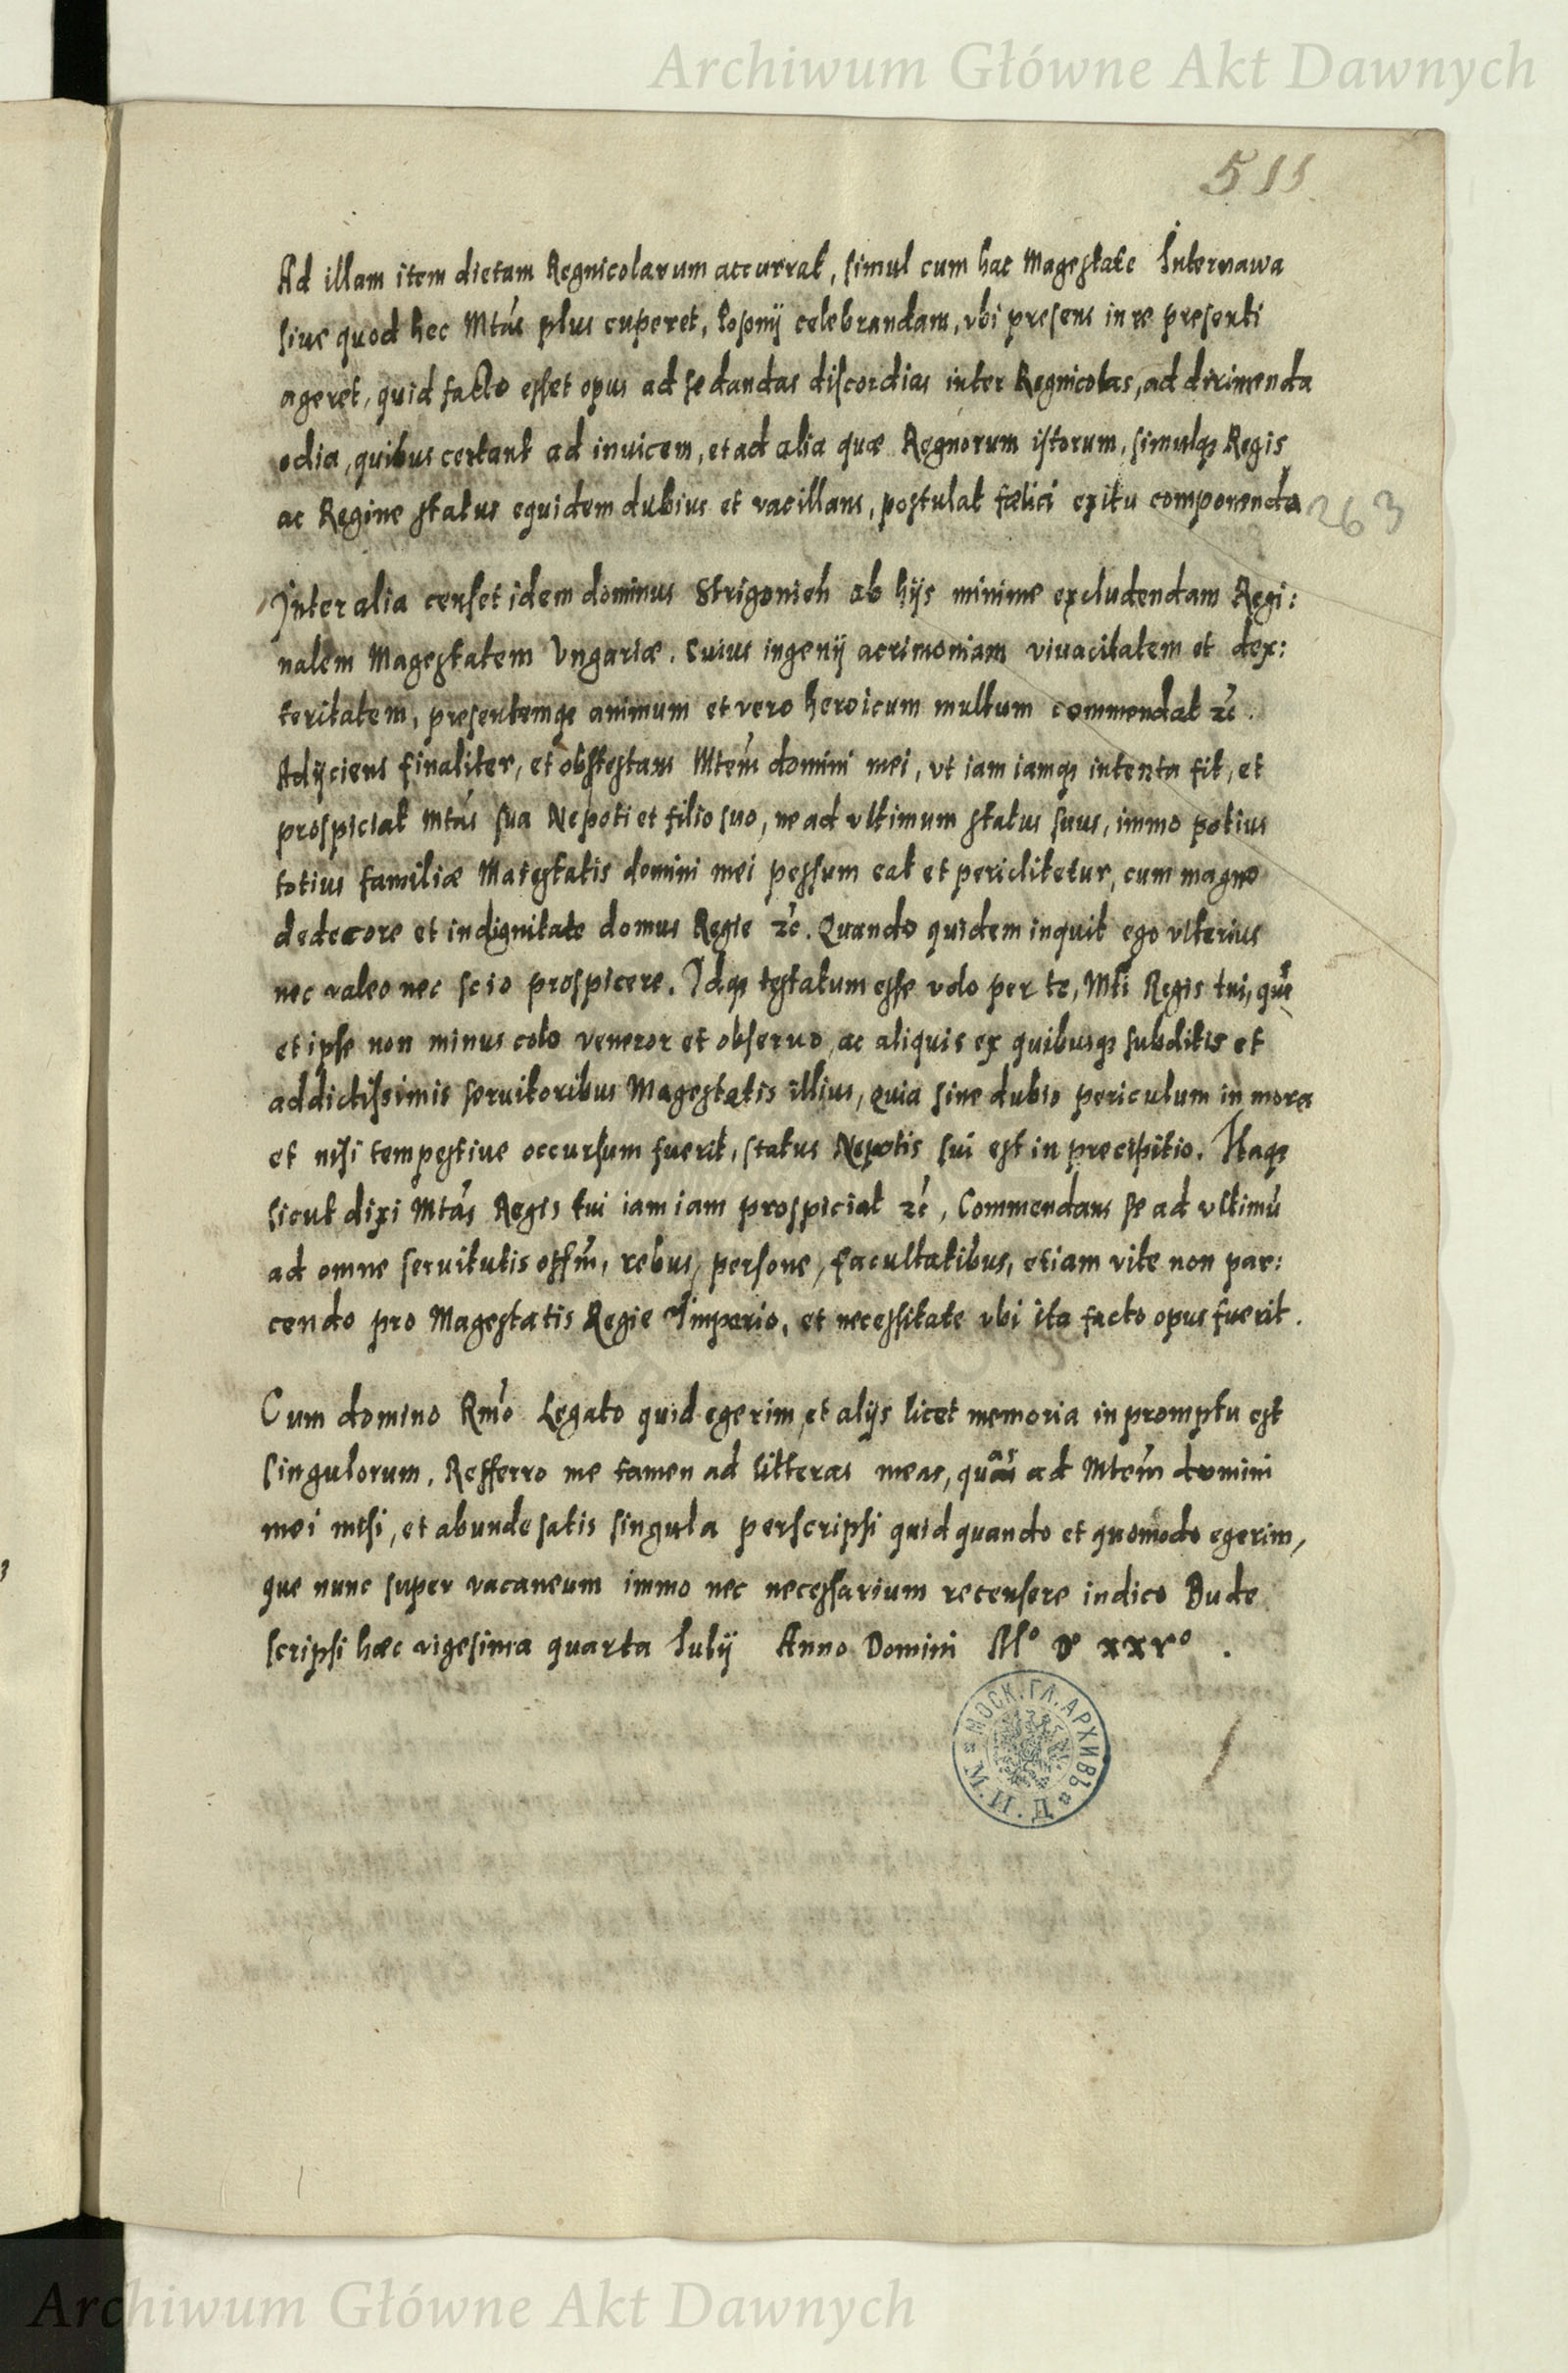 Archiwum Główne Akt Dawnych
511
Ad illam item dietam Regnicolarum accurrat, simul cum hac Magestate Internawa
siue quod hec Mtás plus cuperet, Posonij celebrandam, vbi presens in re presenti
ageret, quid facto esset opus ad sedandas discordias inter Regnicolas, ad dirimenda
odia, quibus certant ad inuicem, et ad alia quæ Regnorum istorum, simulqȝ Regis
ac Regine status equidem dubius et vacillans, postulat fœlici exitu componenda
263
Inter alia censet idem dominus Strigonieñ ab hijs minime excludendam Regi:
nalem Magestatem Vngariæ. Cuius ingenij acrimoniam viuacitatem et dex:
teritatem, presentemqȝ animum et vero heroicum multum commendat ꝛc̃.
Adijciens finaliter, et obstestans Mtem̃ domini mei, vt iam iamqȝ intenta sit, et
prospiciat Mtás sua Nepoti et filio suo, ne ad vltimum status suus, immo potius
totius familiæ Maiestatis domini mei pessum eat et periclitetur, cum magno
dedecore et indignitate domus Regie ꝛc̃. Quando quidem inquit ego vlterius
nec valeo nec scio prospicere. Idqȝ testatum esse volo per te, Mti Regis tui, quẽ
et ipse non minus colo veneror et obseruo, ac aliquis ex quibusqȝ subditis et
addictissimis seruitoribus Magestatis illius, quia sine dubio periculum in mora
et nisi tempestiue occursum fuerit, status Nepotis sui est in precipitio. Itaqȝ
sicut dixi Mtás Regis tui iam iam prospiciat ꝛc̃, Commendans se ad vltimũ
ad omne seruitutis offm̃, rebus, persone, facultatibus, etiam vite non par:
cendo pro Magestatis Regie Imperio, et necessitate vbi ita facto opus fuerit.
Cum domino Rmo Legato quid egerim, et alijs licet memoria in promptu est
singulorum. Refferro me tamen ad litteras meas, quas ad Mtem̃ domini
mei misi, et abunde satis singula perscripsi quid quando et quomodo egerim,
que nunc super vacaneum immo nec necessarium recensere indico Bude
scripsi hæc vigesima quarta Julij Anno Domini Mº Dº xxvº.
МОСК. ГЛ. АРХИВЪ М. И. Д.
Archiwum Główne Akt Dawnych